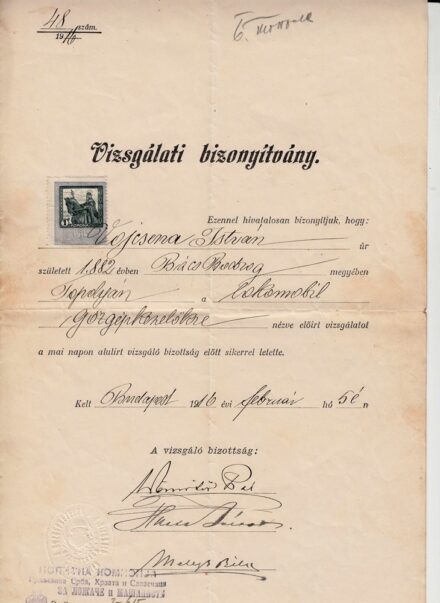 48 szám.
1916
Vizsgálati bizonyítvány.
Ezennel hivatalosan bizonyítjuk, hogy:
Vojcsena István úr
született 1882 évben Bács Bodrog megyében
Topolyán a Lokomobil
gőzgépkezelőkre nézve előirt vizsgálatot
a mai napon alulirt vizsgáló bizottság előtt sikerrel letette.
Kelt Budapest 1916 évi február hó 5én
A vizsgáló bizottság:
Pál
Краљевине Срба, Хрвата и Словенаца
ЗА ЛОЖАЧЕ И МАШИНИСТЕ